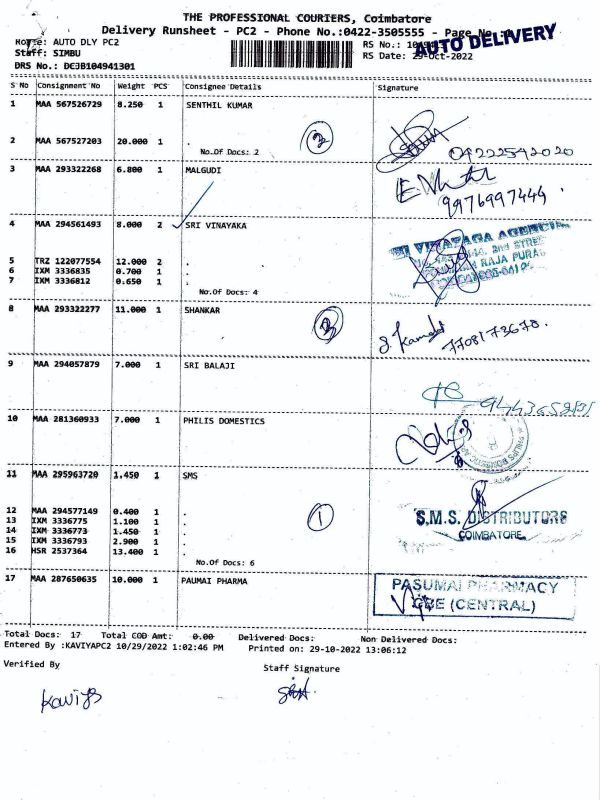 THE PROFESSIONAL COURIERS, Coimbatore
Delivery Runsheet - PC2 - Phone No.:0422-3505555 - Page No.:
Route: AUTO DLY PC2
RS No.:
AUTO DELIVERY
Staff: SIMBU
RS Date: 29-Oct-2022
DRS No.: DCJB104941301
S No Consignment No Weight PCS Consignee Details Signature
1 MAA 567526729 8.250 1 SENTHIL KUMAR
2 MAA 567527203 20.000 1 .
No.Of Docs: 2
2
04222542020
3 MAA 293322268 6.800 1 MALGUDI
9976997449.
4 MAA 294561493 8.000 2 SRI VINAYAKA
VINAYAGA AGENCIES
RAJA PURAM
5 TRZ 122077554 12.000 2 .
6 IXM 3336835 0.700 1 .
7 IXM 3336812 0.650 1 .
No.Of Docs: 4
8 MAA 293322277 11.000 1 SHANKAR
S. Kamal
7708173678.
9 MAA 294057879 7.000 1 SRI BALAJI
10 MAA 281360933 7.000 1 PHILIS DOMESTICS
11 MAA 295963720 1.450 1 SMS
12 MAA 294577149 0.400 1 .
13 IXM 3336775 1.100 1 .
14 IXM 3336773 1.450 1 .
15 IXM 3336793 2.900 1 .
16 HSR 2537364 13.400 1 .
No.Of Docs: 6
1
S.M.S. DISTRIBUTORS
COIMBATORE
17 MAA 287650635 10.000 1 PAUMAI PHARMA
PASUMAI PHARMACY
CBE (CENTRAL)
Total Docs: 17 Total COD Amt: 0.00 Delivered Docs: Non Delivered Docs:
Entered By :KAVIYAPC2 10/29/2022 1:02:46 PM Printed on: 29-10-2022 13:06:12
Verified By Staff Signature